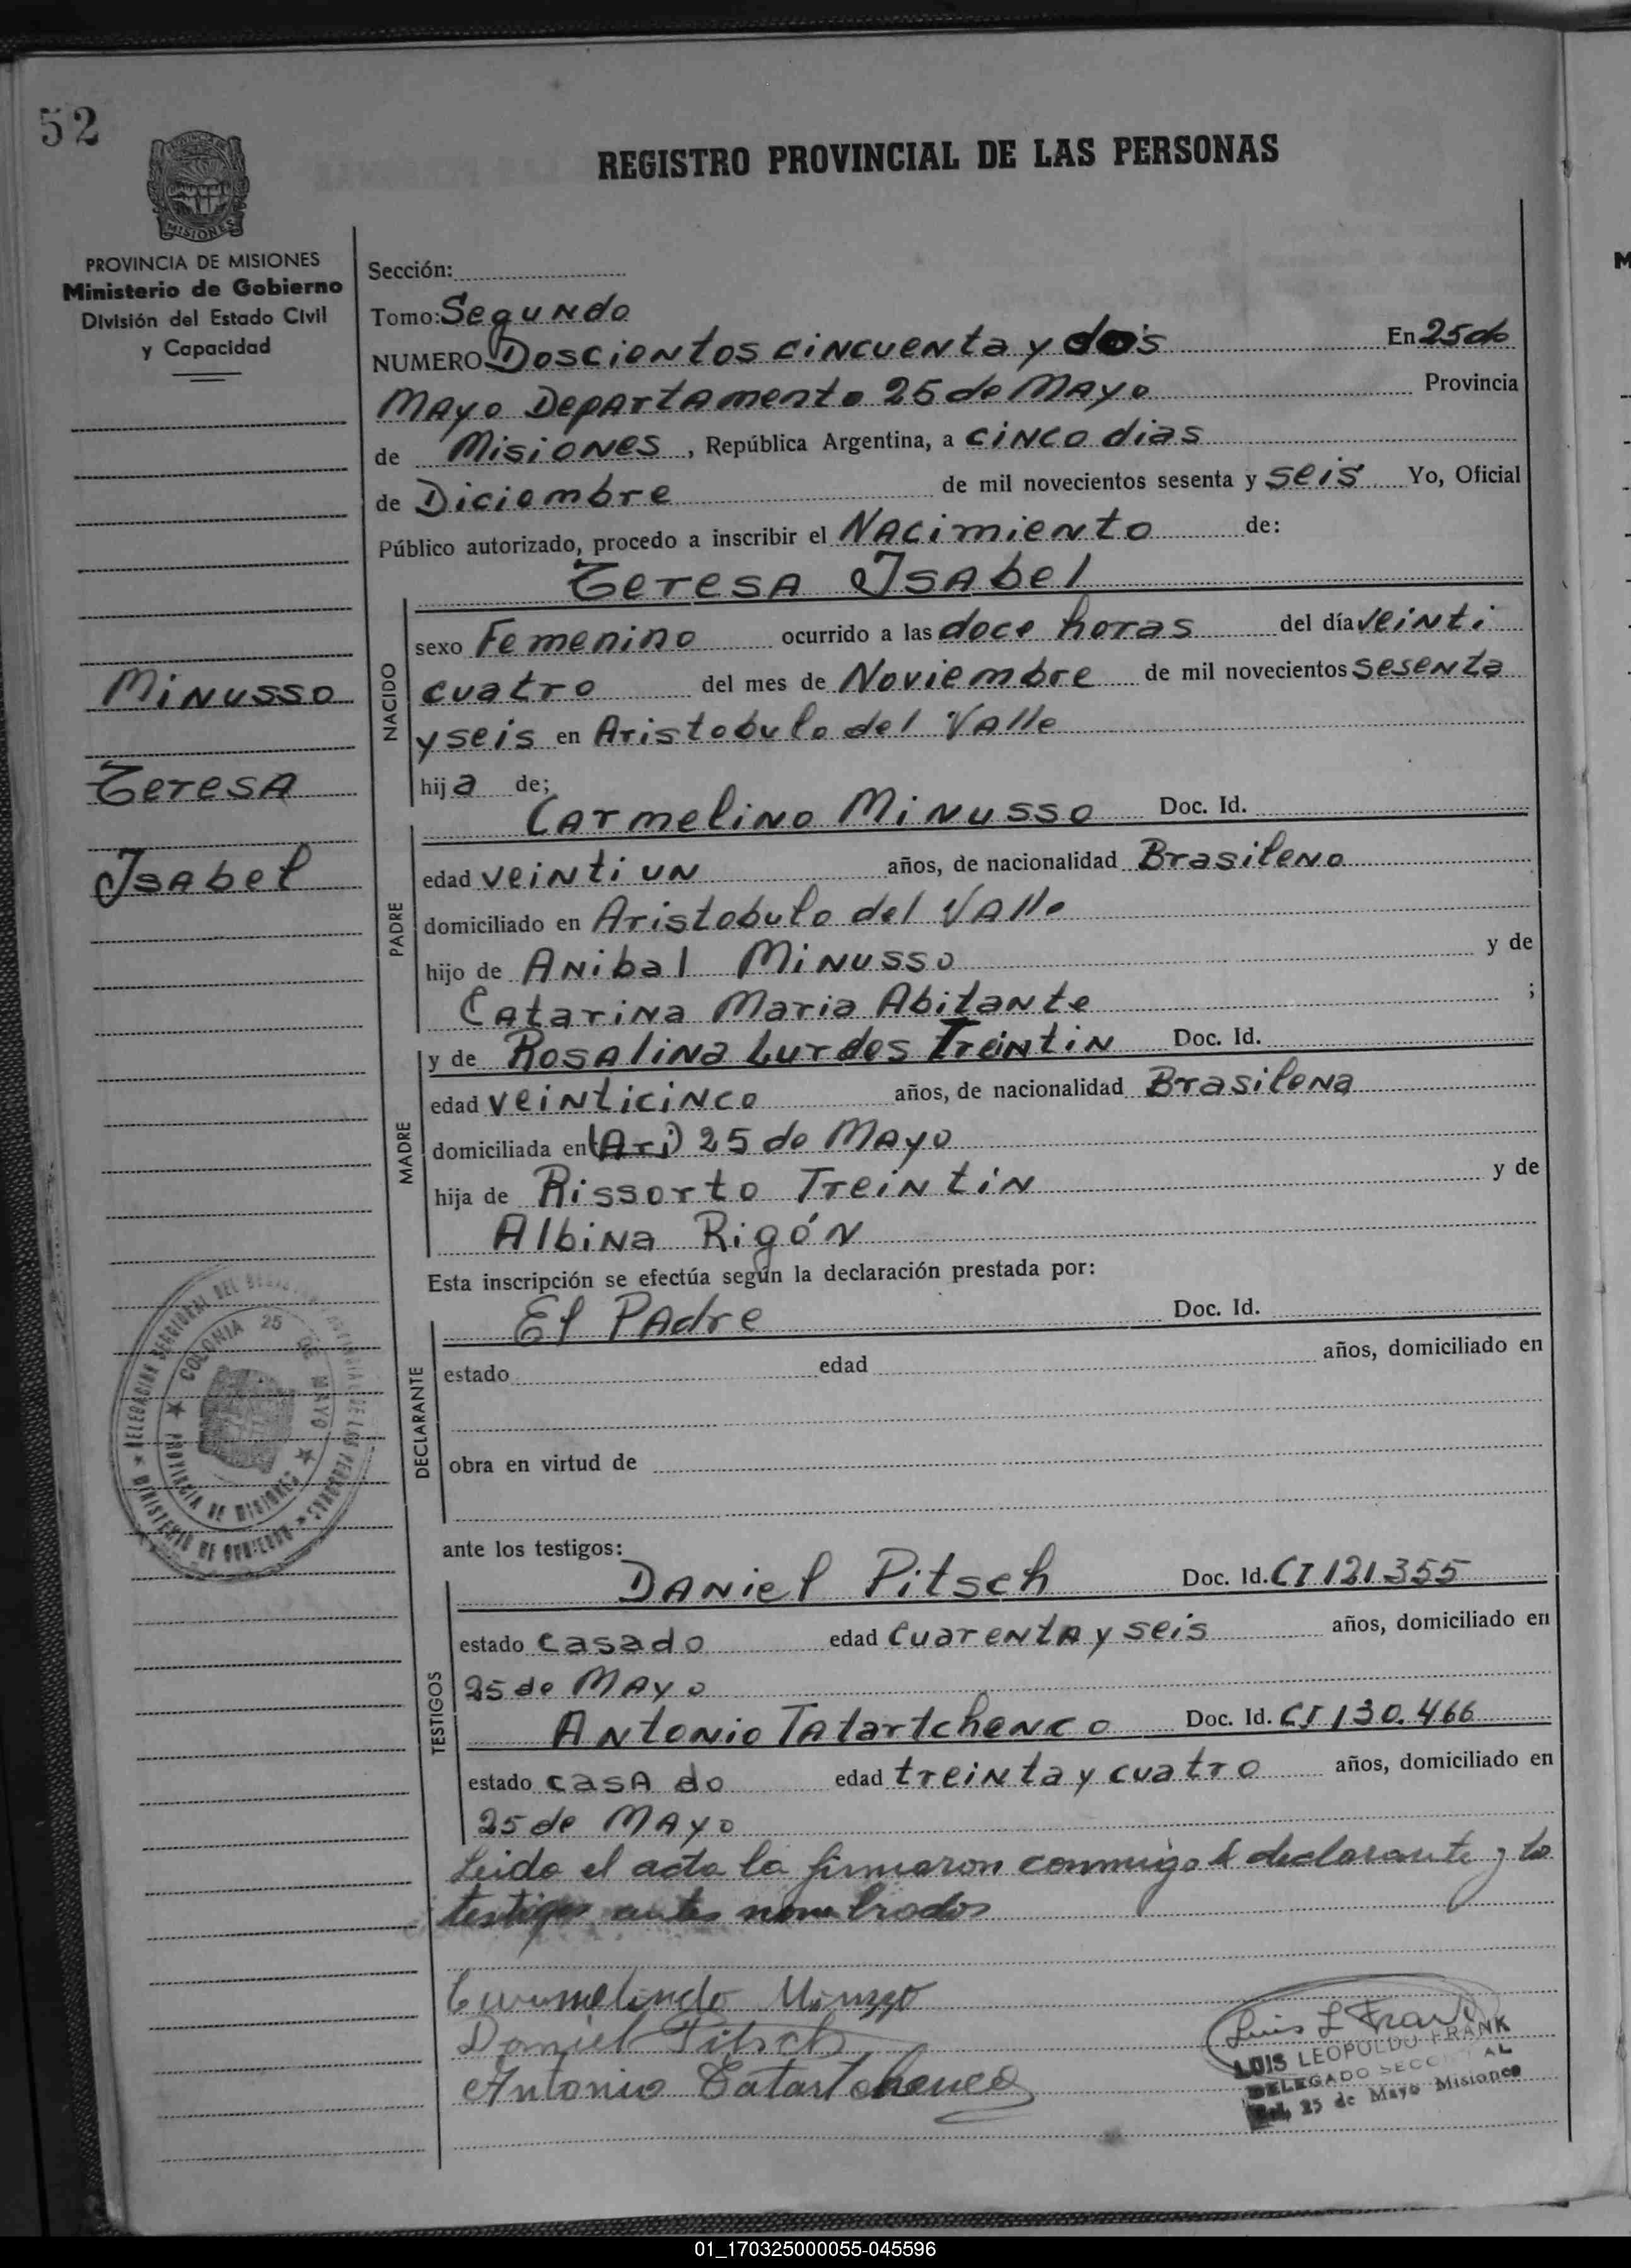 52
REGISTRO PROVINCIAL DE LAS PERSONAS
MISIONES
PROVINCIA DE MISIONES
Ministerio de Gobierno
División del Estado Civil
y Capacidad
Minusso
Teresa
Isabel
Sección:
Tomo: Segundo
NUMERO Doscientos cincuenta y dos En 25 de
Mayo Departamento 25 de Mayo Provincia
de Misiones, República Argentina, a cinco dias
de Diciembre de mil novecientos sesenta y seis Yo, Oficial
Público autorizado, procedo a inscribir el Nacimiento de:
Teresa Isabel
NACIDO
sexo Femenino ocurrido a las doce horas del día veinti
cuatro del mes de Noviembre de mil novecientos sesenta
y seis en Aristobulo del Valle
hija de;
Carmelino Minusso Doc. Id.
PADRE
edad veinti un años, de nacionalidad Brasileno
domiciliado en Aristobulo del Valle
hijo de Anibal Minusso y de
Catarina Maria Abitante ;
y de Rosalina Lurdes Treintin Doc. Id.
MADRE
edad veinticinco años, de nacionalidad Brasilena
domiciliada en (Ari) 25 de Mayo
hija de Rissorto Treintin y de
Albina Rigón
Esta inscripción se efectúa según la declaración prestada por:
El Padre Doc. Id.
DECLARANTE
estado edad años, domiciliado en
obra en virtud de
ante los testigos:
Daniel Pitsch Doc. Id. CI 121.355
TESTIGOS
estado casado edad cuarenta y seis años, domiciliado en
25 de Mayo
Antonio Tatartchenco Doc. Id. CI 130.466
estado casado edad treinta y cuatro años, domiciliado en
25 de Mayo
Leido el acta la firmaron conmigo el declarante y los
testigos antes nombrados
Daniel Pitsch
Antonio Tatartchenco
Luis L Frank
LUIS LEOPOLDO FRANK
DELEGADO SECCIONAL
25 de Mayo Misiones
COLONIA 25 DE MAYO
PROVINCIA DE MISIONES
MINISTERIO DE GOBIERNO
01_170325000055-045596